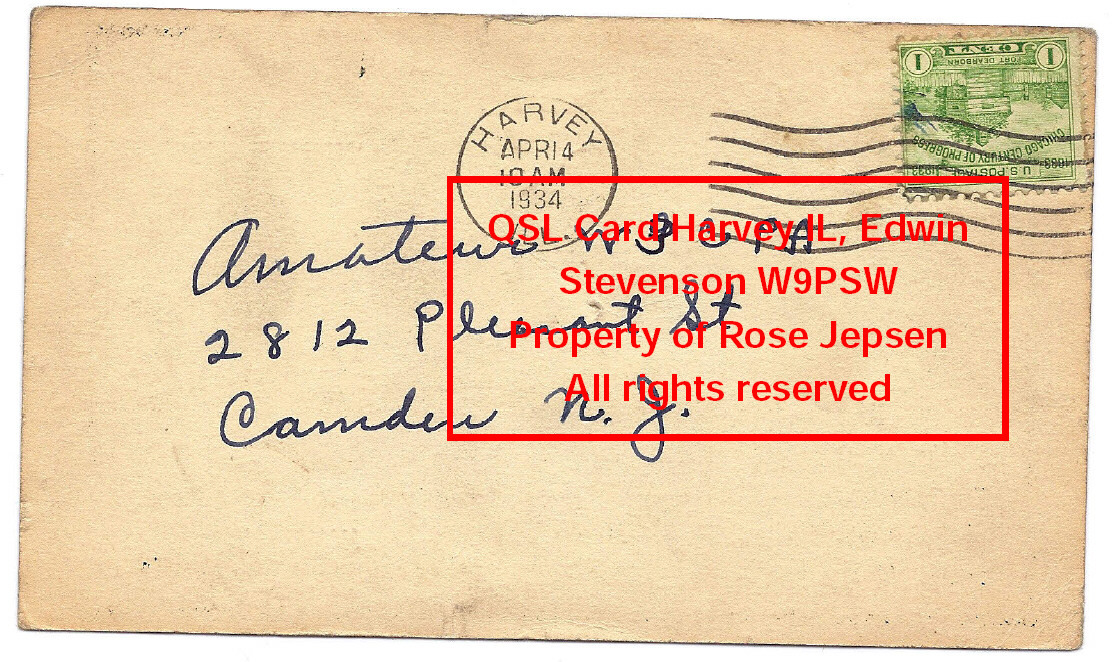 HARVEY
APR 14
10 AM
1934
1 CENT 1
FORT DEARBORN
CHICAGO CENTURY OF PROGRESS
U.S. POSTAGE
1833 1933
Amateur W
2812 Pleasant St
Camden N. J.
QSL Card Harvey IL, Edwin
Stevenson W9PSW
Property of Rose Jepsen
All rights reserved